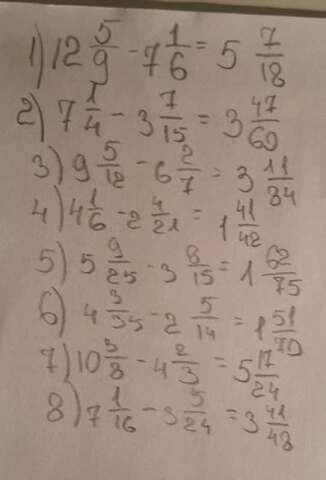 1) 12 5/9 - 7 1/6 = 5 7/18
2) 7 1/4 - 3 7/15 = 3 47/60
3) 9 5/12 - 6 2/7 = 3 11/84
4) 4 1/6 - 2 4/21 = 1 41/42
5) 5 9/25 - 3 8/15 = 1 62/75
6) 4 3/35 - 2 5/14 = 1 51/70
7) 10 3/8 - 4 2/3 = 5 17/24
8) 7 1/16 - 3 5/24 = 3 41/48